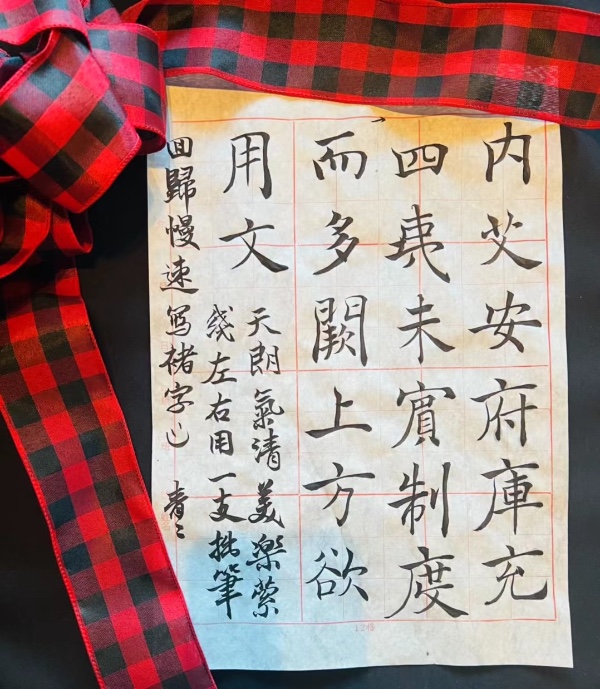 内艾安府庫充
四夷未賓制度
而多闕上方欲
用文
天朗氣清美樂縈
左右用一支筆
回歸慢速寫褚字
青々